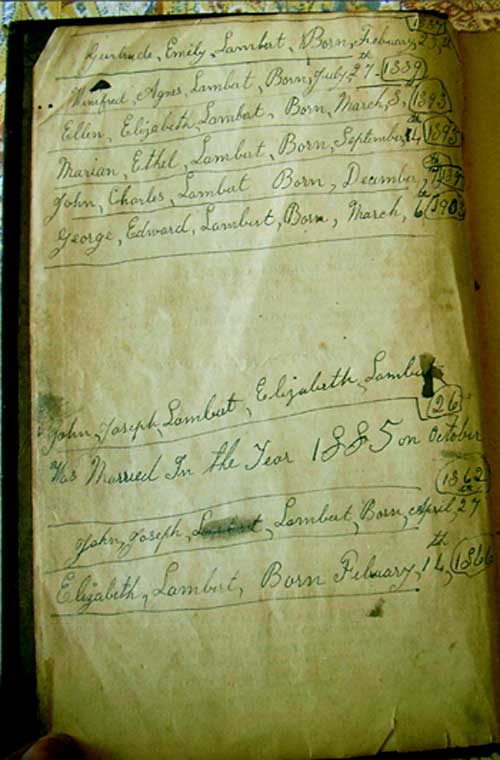 Gertrude, Emily, Lambert, Born, Febuary, 1887
Winifred, Agnes, Lambert, Born, July, 27th 1889
Ellen, Elizabeth, Lambert, Born, March,
Marian, Ethel, Lambert, Born, September, 1893
John, Charles, Lambert Born, December,
George, Edward, Lambert, Born, March, 6th 1903
John, Joseph, Lambert, Elizabeth, Lambert
Was Married In the Year 1885 on October 26
John, Joseph, Lambert, Born, April, 27 1862
Elizabeth, Lambert, Born Febuary, 14th, 1866